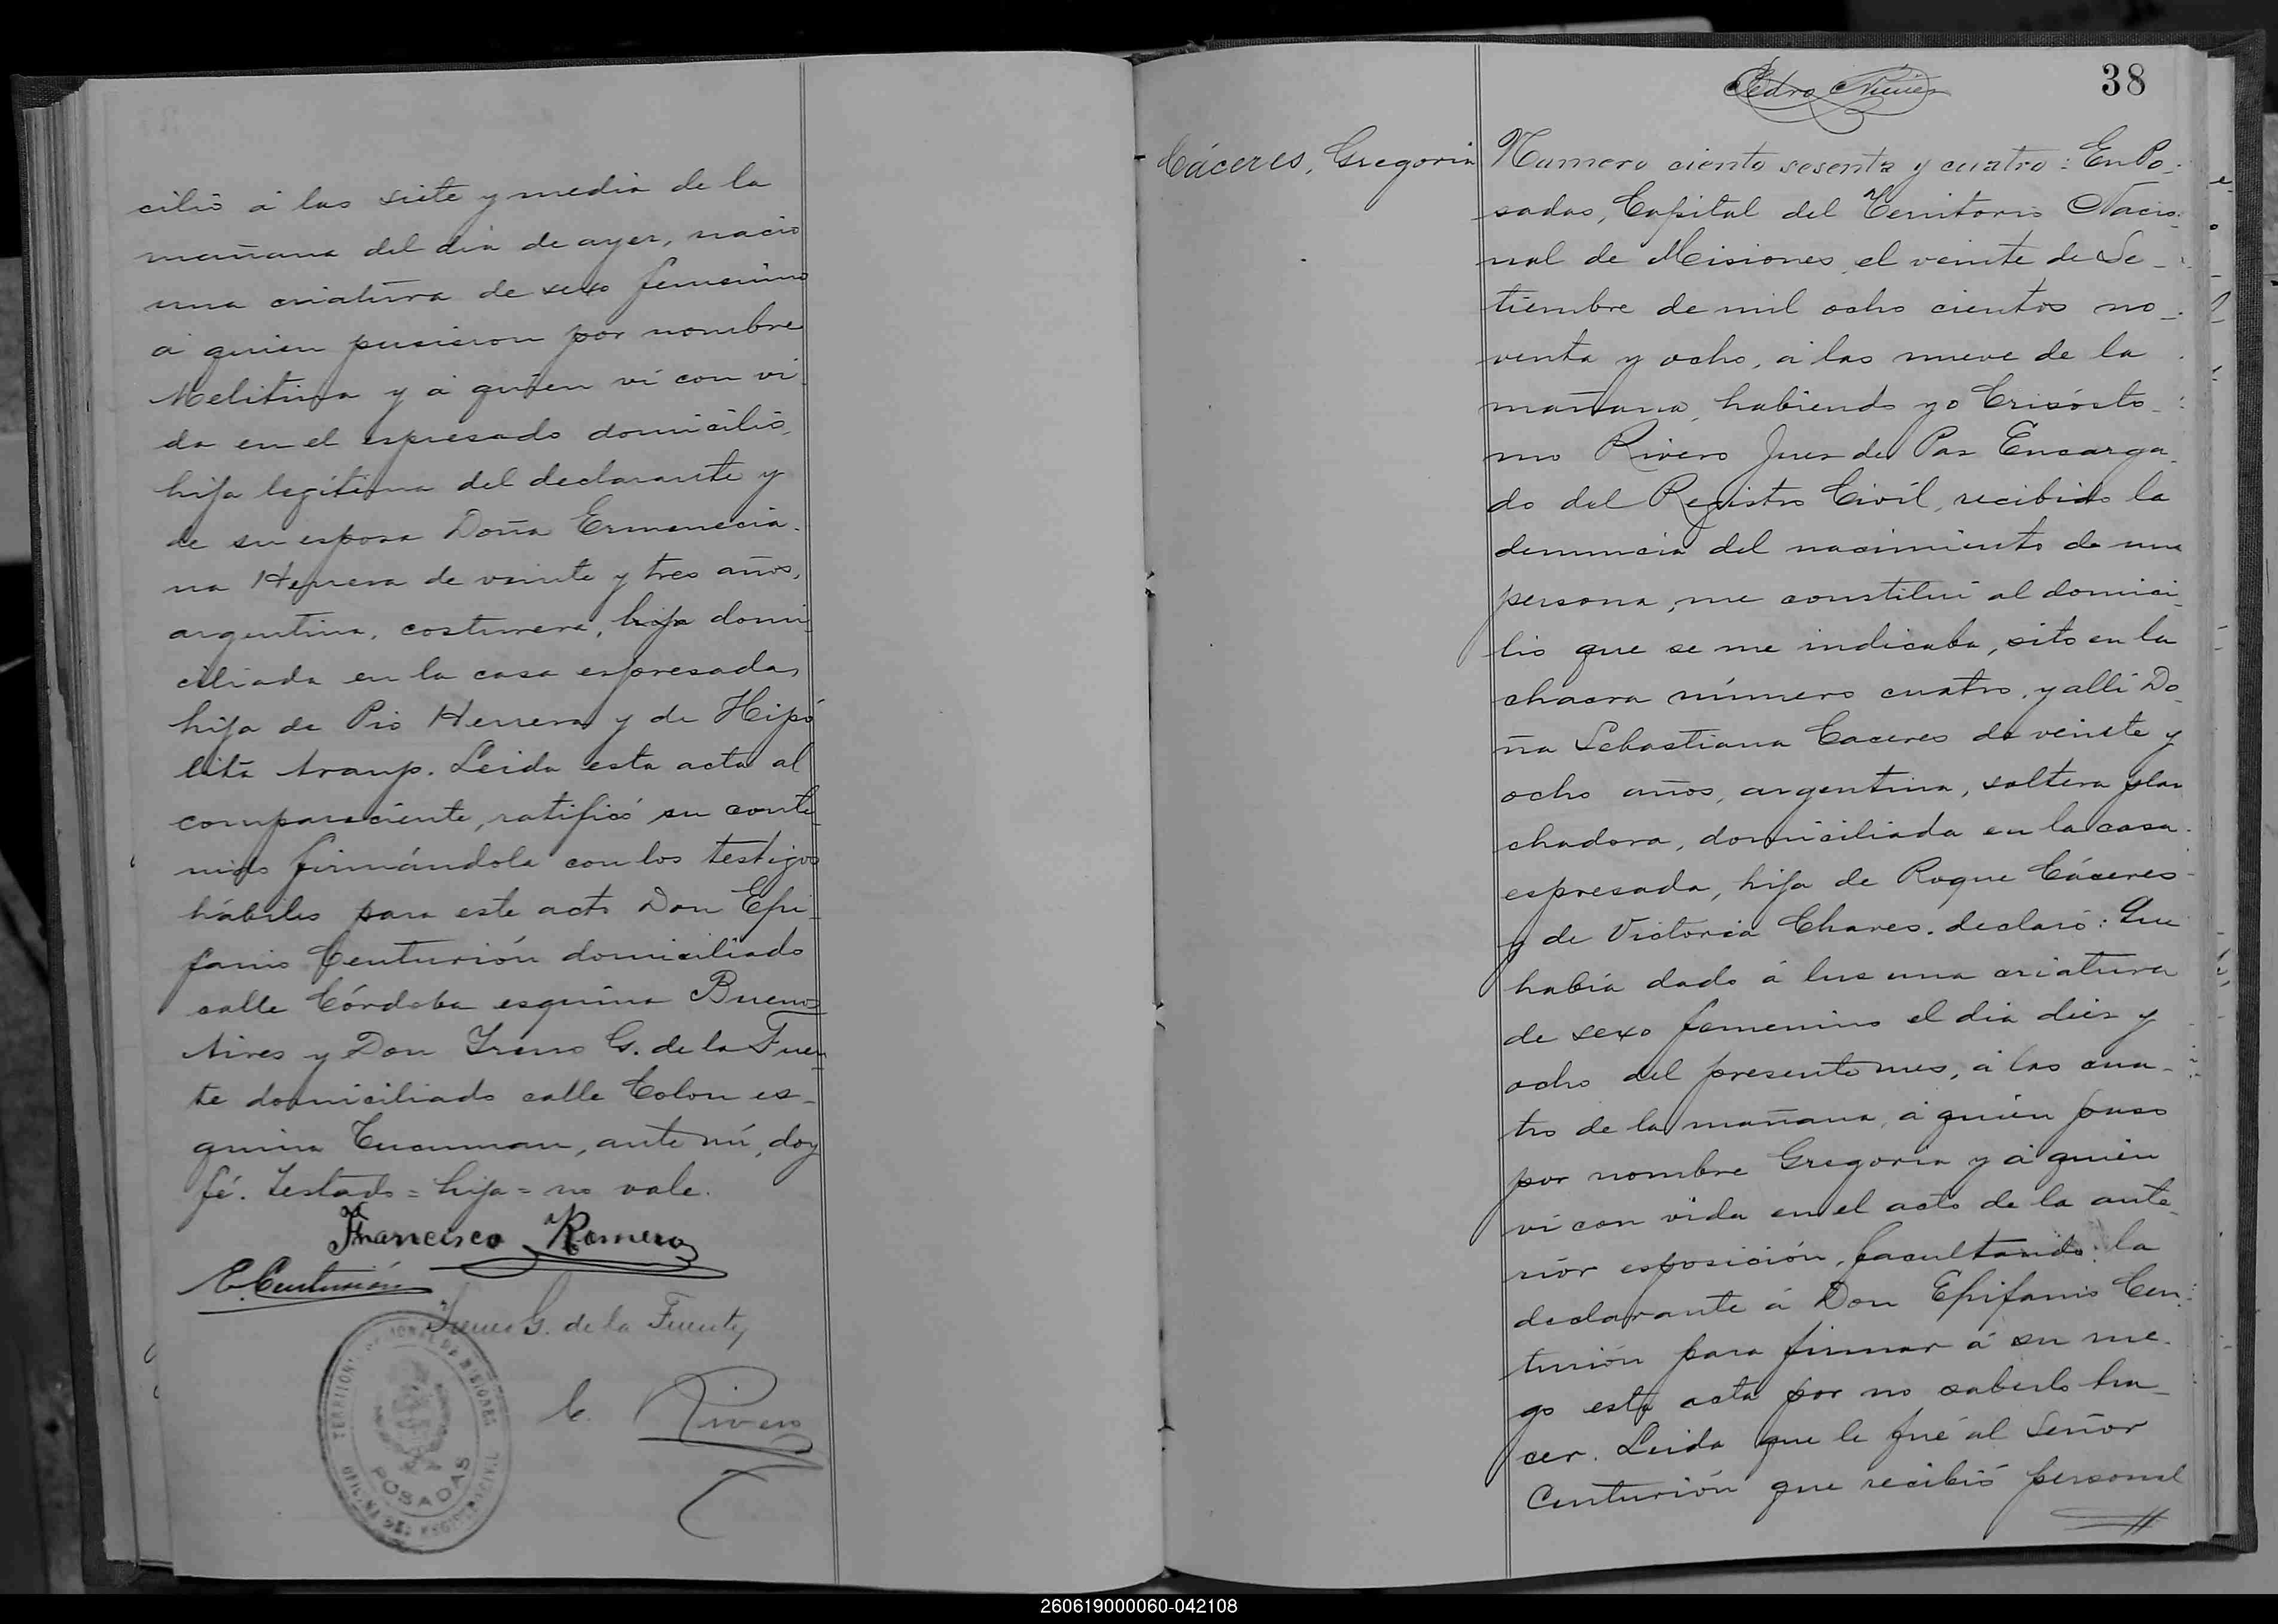 cilio á las siete y media de la
mañana del dia de ayer, nació
una criatura de sexo femenino
á quien pusieron por nombre
Melitina y á quien vi con vi
da en el espresado domicilio,
hija legítima del declarante y
de su esposa Doña Ermenecia
na Herrera de veinte y tres años,
argentina, costurera, hija domi
ciliada en la casa espresada,
hija de Pio Herrera y de Hipó
lita . Leida esta acta al
compareciente, ratificó su conte
nido firmándola con los testigos
hábiles para este acto Don Epi
fanio Centurión domiciliado
calle Córdoba esquina Buenos
Aires y Don Ireneo G. de la Fuen
te domiciliado calle Colon es-
quina Tucuman, ante mí, doy
fé. Testado = hija = no vale.
Francisco Romero
E. Centurión
Ireneo G. de la Fuente
C. Rivero
TERRITORIO NACIONAL DE MISIONES
POSADAS
OFICINA DEL REGISTRO CIVIL
Pedro Nuñez
38
Cáceres, Gregoria
Numero ciento sesenta y cuatro: En Po-
sadas, Capital del Territorio Nacio-
nal de Misiones, el veinte de Se-
tiembre de mil ocho cientos no-
venta y ocho, á las nueve de la
mañana, habiendo yo Crisósto-
mo Rivero Juez de Paz Encarga-
do del Registro Civíl, recibido la
denuncia del nacimiento de una
persona, me constituí al domici-
lio que se me indicaba, sito en la
chacra número cuatro, y allí Do
ña Sebastiana Caceres de veinte y
ocho años, argentina, soltera plan
chadora, domiciliada en la casa
espresada, hija de Roque Cáceres
y de Victoria Chaves. declaró: Que
habia dado á luz una criatura
de sexo femenino el dia diez y
ocho del presente mes, á las cua-
tro de la mañana, á quien puso
por nombre Gregoria y á quien
vi con vida en el acto de la ante
rior esposición, facultando la
declarante á Don Epifanio Cen-
turión para firmar á su rue-
go esta acta por no saberlo ha-
cer. Leida que le fué al Señor
Centurión que recibió personal
260619000060-042108